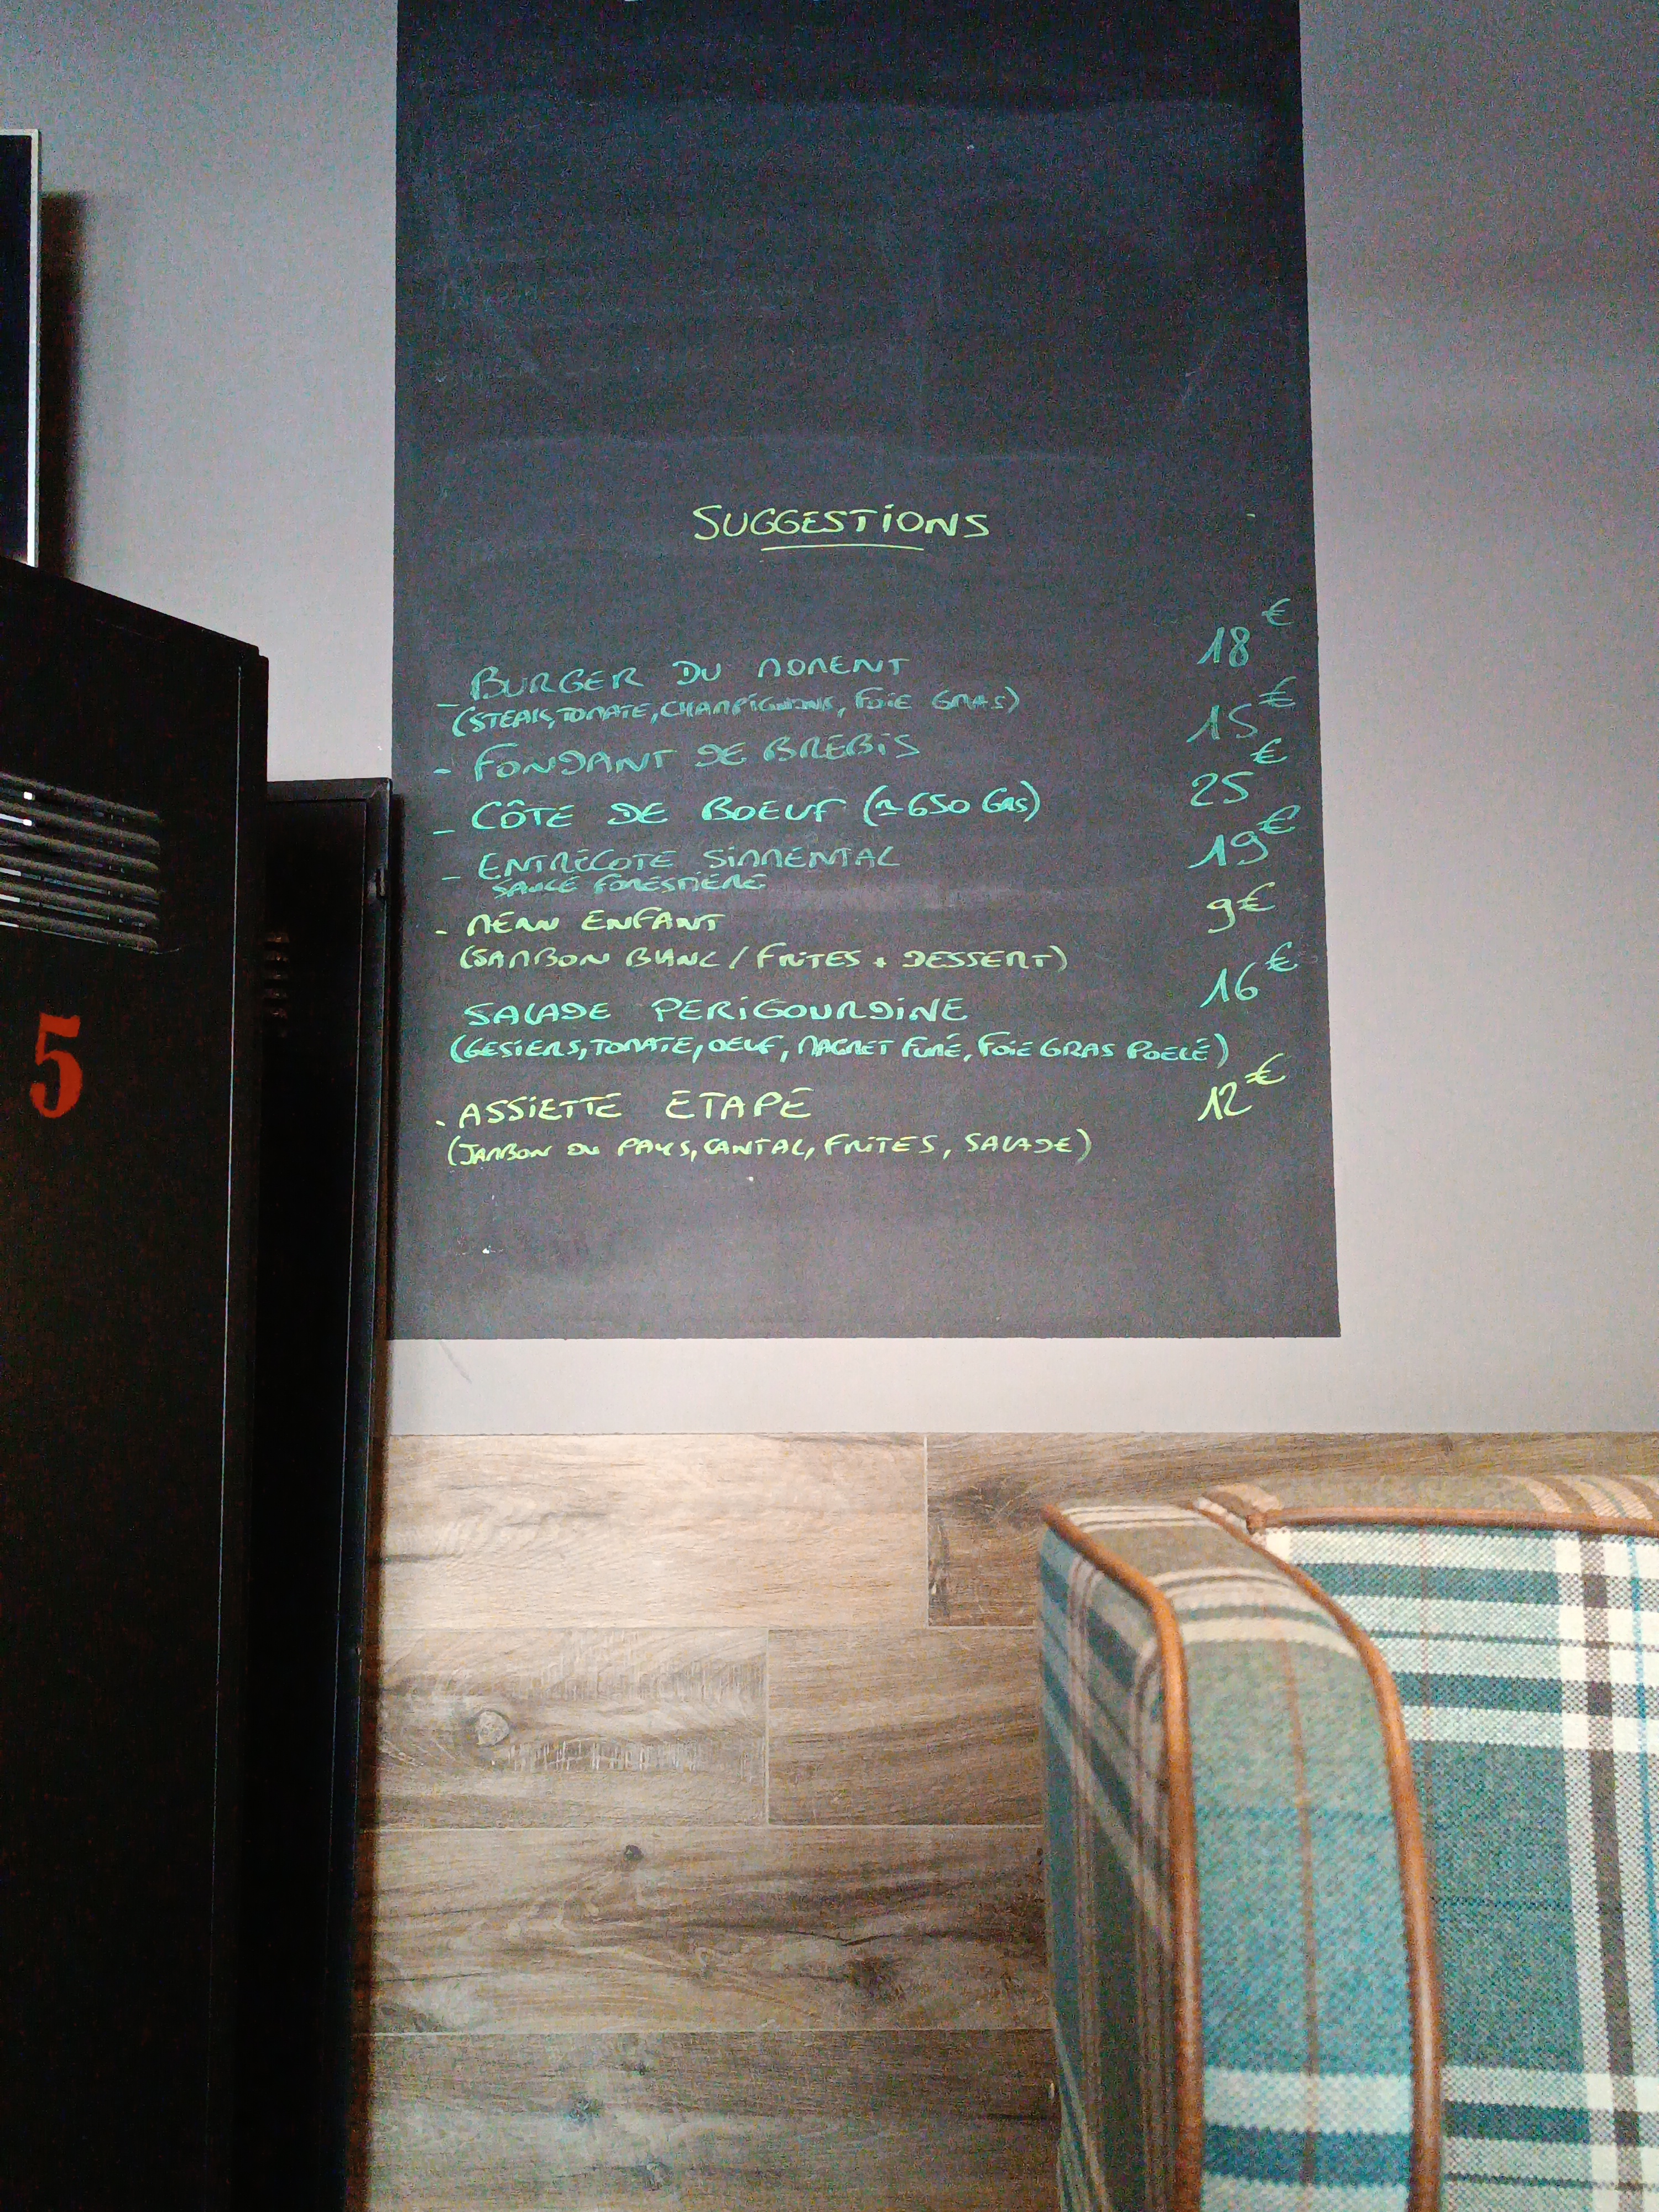 SUGGESTIONS
- BURGER DU MOMENT 18€
(STEAK, TOMATE, CHAMPIGNONS, FOIE GRAS)
- FONDANT DE BREBIS 15€
- CÔTE DE BOEUF (≃650 GRS) 25€
- ENTRECOTE SIMMENTAL 19€
SAUCE FORESTIÈRE
- MENU ENFANT 9€
(JAMBON BLANC / FRITES + DESSERT)
SALADE PERIGOURDINE 16€
(GESIERS, TOMATE, OEUF, MAGRET FUMÉ, FOIE GRAS POELÉ)
- ASSIETTE ETAPE 12€
(JAMBON DU PAYS, CANTAL, FRITES, SALADE)
5